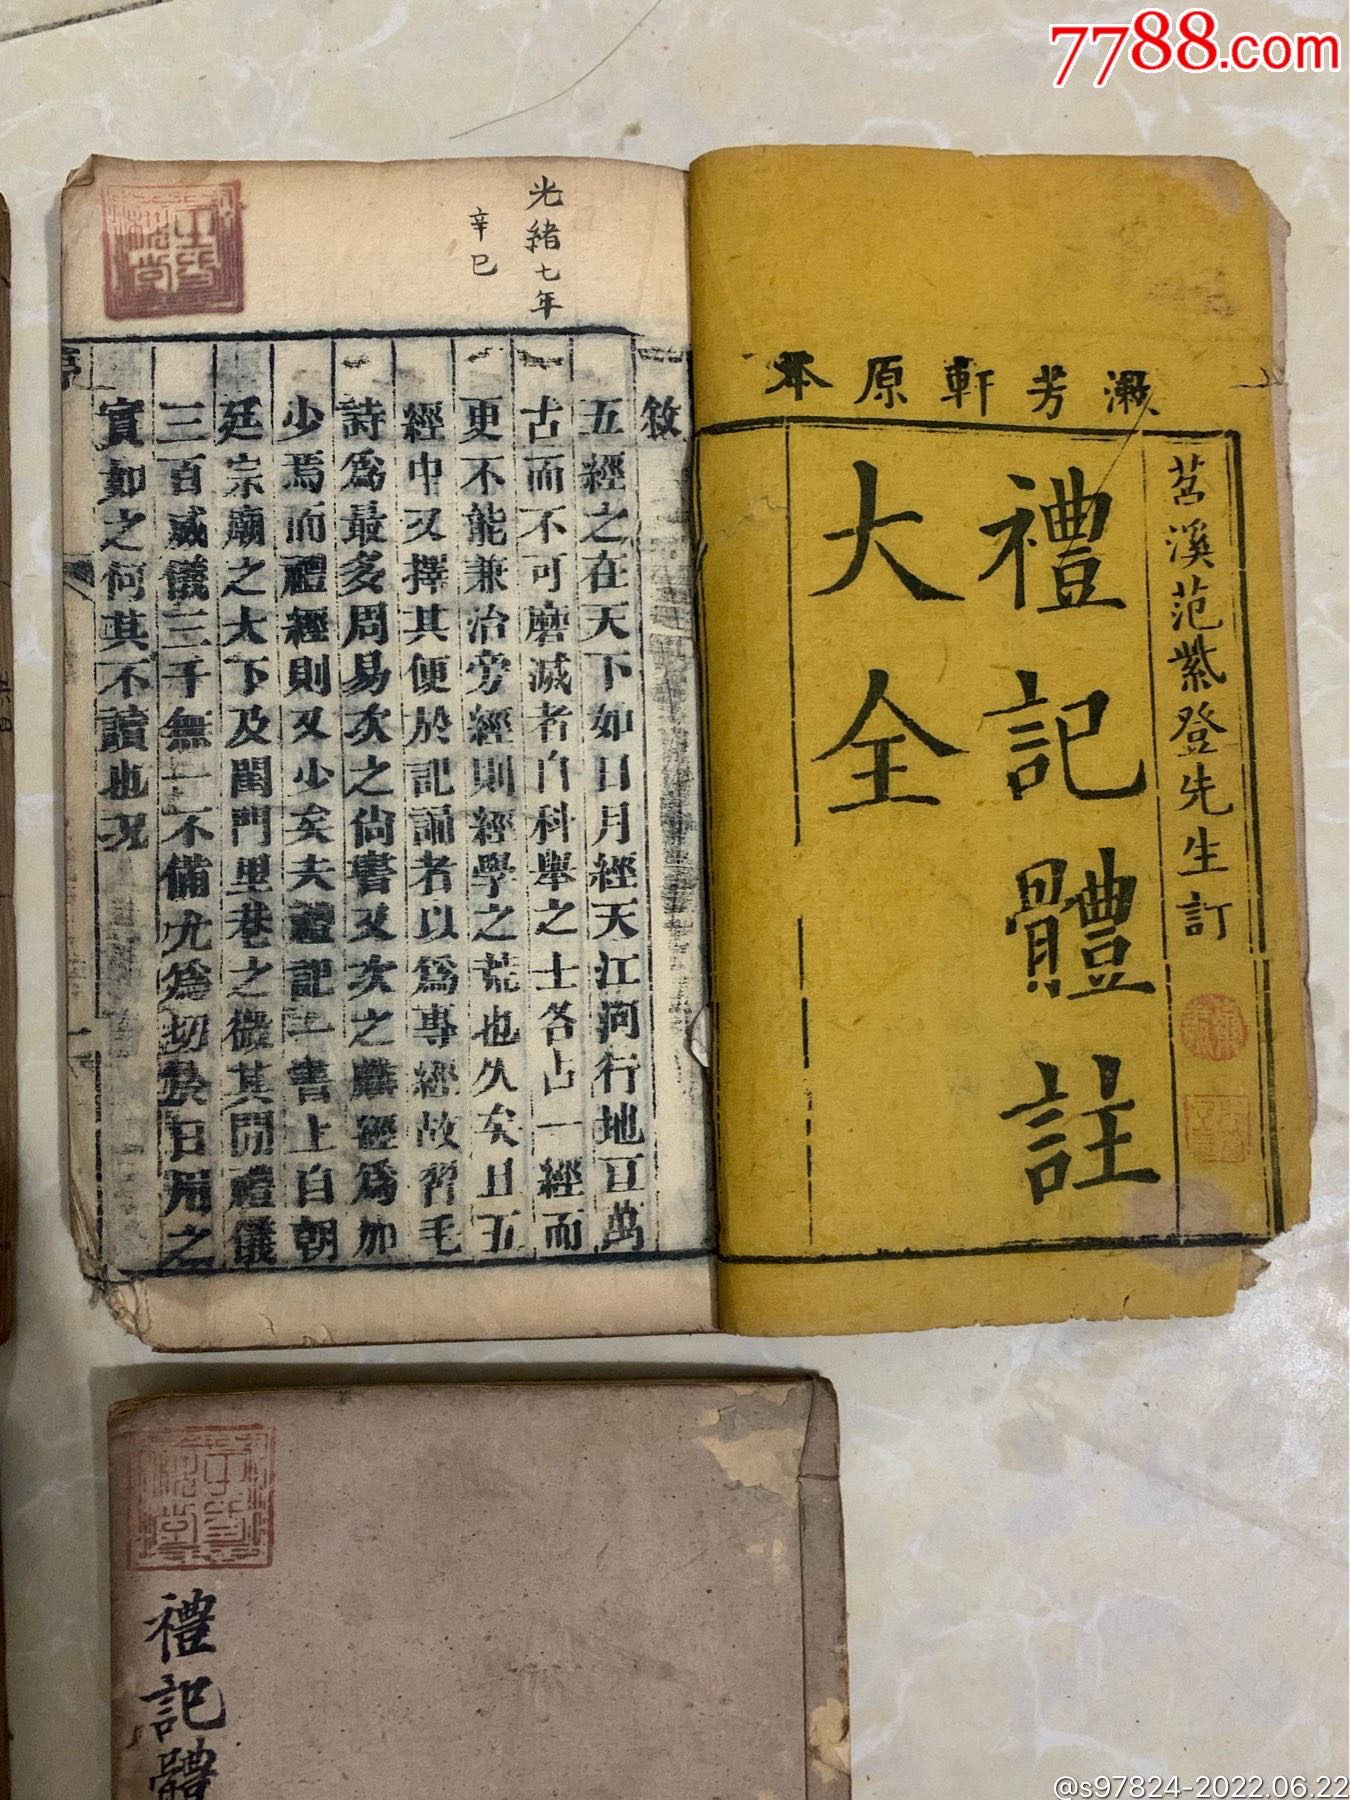 7788.com
漱芳軒原本
苕溪范紫登先生訂
禮記體註
大全
光緒七年
辛巳
敘
五經之在天下如日月經天江河行地亘萬
古而不可磨滅者自科舉之士各占一經而
更不能兼治旁經則經學之荒也久矣且五
經中又擇其便於記誦者以爲專經故習毛
詩爲最多周易次之尙書又次之麟經爲加
少焉而禮經則又少矣夫禮記一書上自朝
廷宗廟之大下及閨門里巷之微其間禮儀
三百威儀三千無一不備尤爲切於日用之
實如之何其不讀也况
禮記體
@s97824-2022.06.22